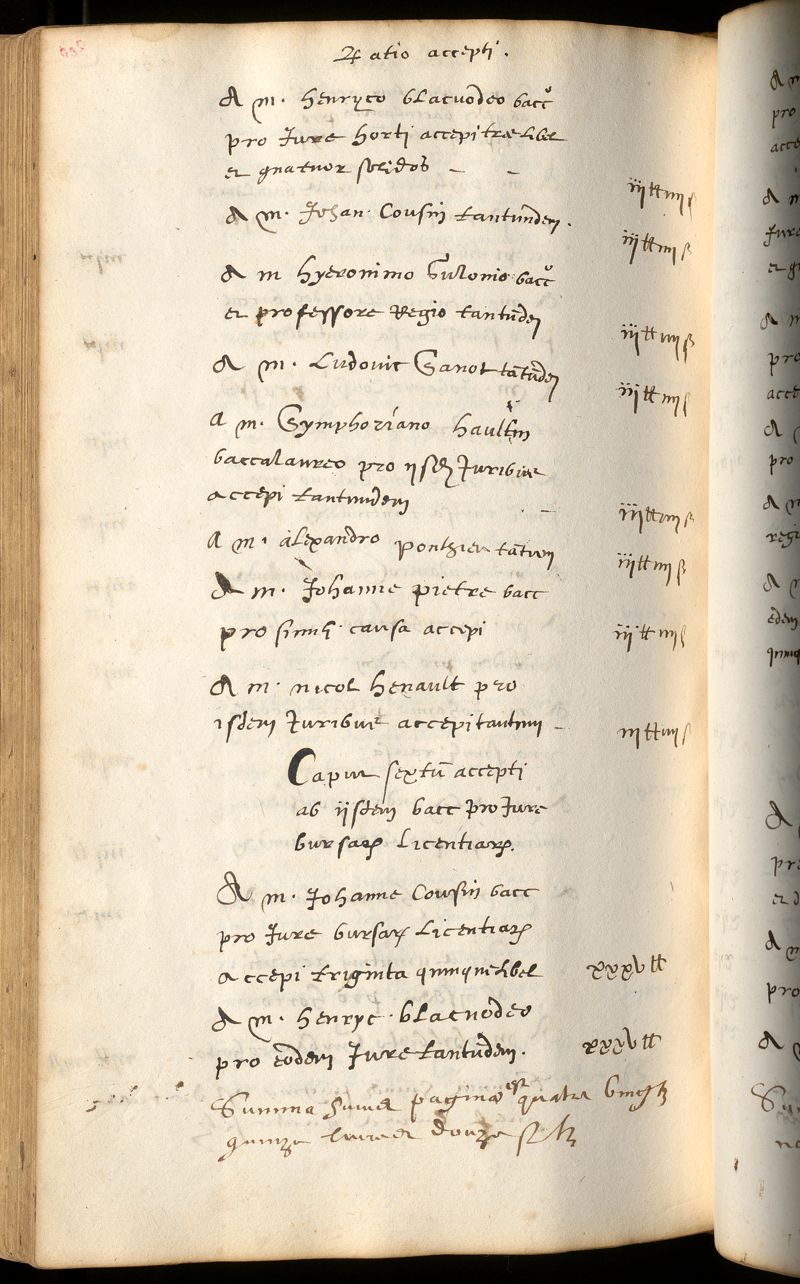 Ratio accepti.
A m. Henryco Blacuodeo bacc
pro Jure horti accepi tres libel
et quatuor solidos
iii ₶ iiii ß
A m. Johan. Cousin tantundem.
iii ₶ iiii ß
A m Hyeronimo bacc
et professore Regio tantūdē
iii ₶ iiii ß
A m. Ludovic Sanot tātūdē
iii ₶ iiii ß
A m. Symphoriano Haultin
baccalaureo pro iisdē Juribus
accepi tantundem
iii ₶ iiii ß
A m. alexandro ponthier tātun
iii ₶ iiii ß
A m. Johanne pietre bacc
pro simili causa accepi
iii ₶ iiii ß
A m. nicol Henault pro
isdem Juribus accepi tantum
iii ₶ iiii ß
Caput sextū accepti
ab iisdem bacc pro Jure
bursarȝ Licentiarȝ.
A m. Johanne Cousin bacc
pro Jure bursarȝ Licentiarȝ
accepi triginta quinque libel
xxxv ₶
A m. Henryc. blacuodeo
pro eodem Jure tantundem.
xxxv ₶
Summa paginæ est quatre vingtz
quinze livres douze